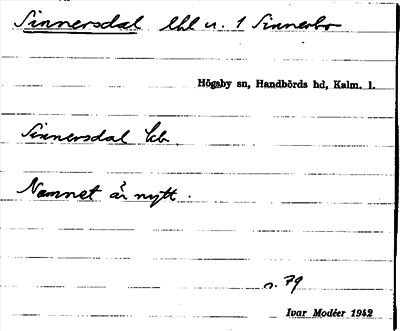 Sinnersdal lhl u. 1 Sinnerbo
Högsby sn, Handbörds hd, Kalm. l.
Sinnersdal kb.
Namnet är nytt.
s. 79
Ivar Modéer 1942